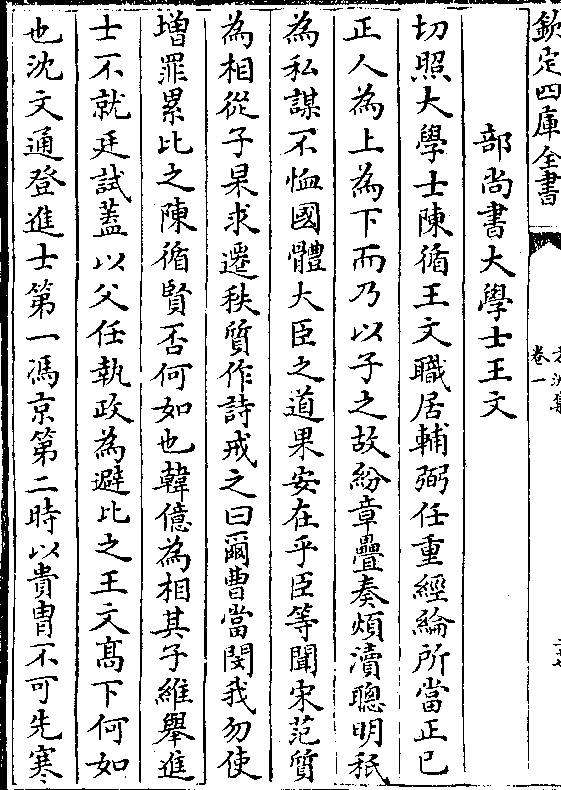 欽定四庫全書
卷一
部尚書大學士王文
切照大學士陳循王文職居輔弼任重經綸所當正已
正人為上為下而乃以子之故紛章疊奏煩瀆聰明秖
為私謀不恤國體大臣之道果安在乎臣等聞宋范質
為相從子杲求遷秩質作詩戒之曰爾曹當閔我勿使
増罪累比之陳循賢否何如也韓億為相其子維舉進
士不就廷試蓋以父任執政為避比之王文髙下何如
也沈文通登進士第一馮京第二時以貴胄不可先寒